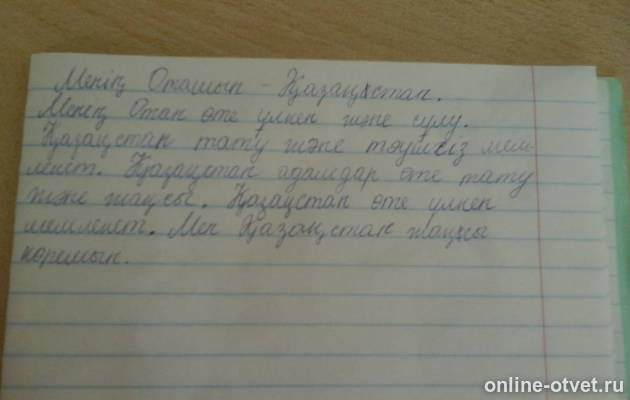 Менің Оташын - Қазақыстан.
Менің Отан өте үлкен және сұлу.
Қазақстан тату және тәуйсіз мем-
лекет. Қазақстан адамдар өте тату
және жақсы. Қазақстан өте үлкен
мемлекет. Мен Қазақстан жақсы
көремын.
online-otvet.ru